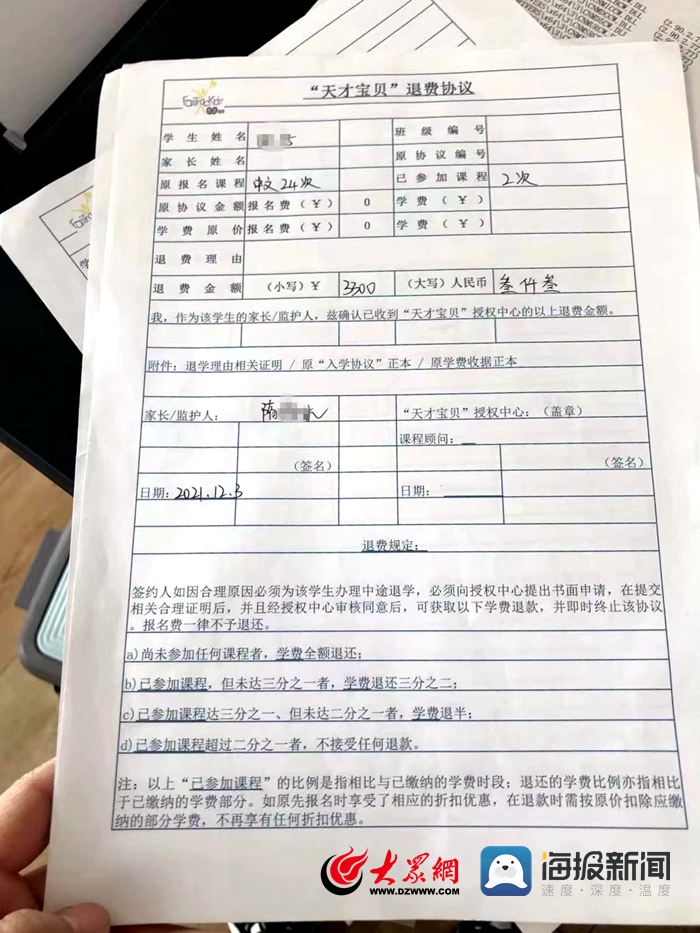 FasTracKids
“天才宝贝”退费协议
学生姓名 班级编号
家长姓名 原协议编号
原报名课程 中文24次 已参加课程 2次
原协议金额 报名费（￥） 0 学费（￥）
学费原价 报名费（￥） 0 学费（￥）
退费理由
退费金额 （小写）￥ 3300 （大写）人民币 叁仟叁
我，作为该学生的家长/监护人，兹确认已收到“天才宝贝”授权中心的以上退费金额。
附件：退学理由相关证明 / 原“入学协议”正本 / 原学费收据正本
家长/监护人： “天才宝贝”授权中心：（盖章）
课程顾问：
（签名） （签名）
日期：2021.12.3 日期：
退费规定：
签约人如因合理原因必须为该学生办理中途退学，必须向授权中心提出书面申请，在提交
相关合理证明后，并且经授权中心审核同意后，可获取以下学费退款，并即时终止该协议
。报名费一律不予退还。
a)尚未参加任何课程者，学费全额退还；
b)已参加课程，但未达三分之一者，学费退还三分之二；
c)已参加课程达三分之一、但未达二分之一者，学费退半；
d)已参加课程超过二分之一者，不接受任何退款。
注：以上“已参加课程”的比例是指相比与已缴纳的学费时段；退还的学费比例亦指相比
于已缴纳的学费部分。如原先报名时享受了相应的折扣优惠，在退款时需按原价扣除应缴
纳的部分学费，不再享有任何折扣优惠。
大众網
www.dzwww.com
海报新闻
速度·深度·温度